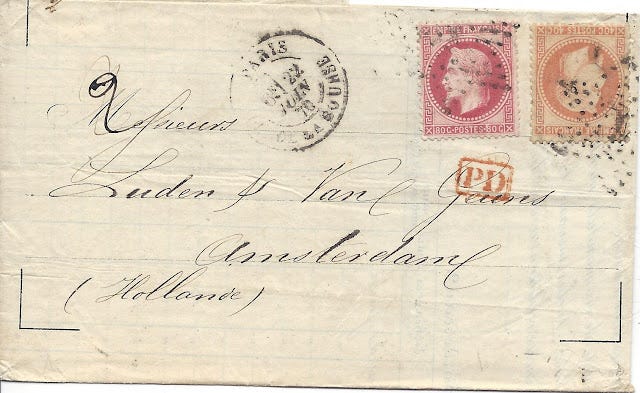 PARIS
22
JUIN
70
EMPIRE FRANÇAIS
80C·POSTES·80C
40C POSTES 40C
2
Messieurs
Luden & Van Geuns
PD
Amsterdam
(Hollande)